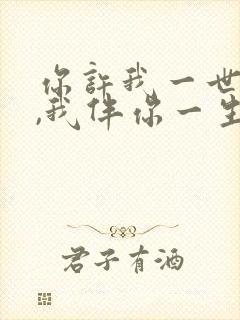 你許我一世
,我伴你一生
君子有酒